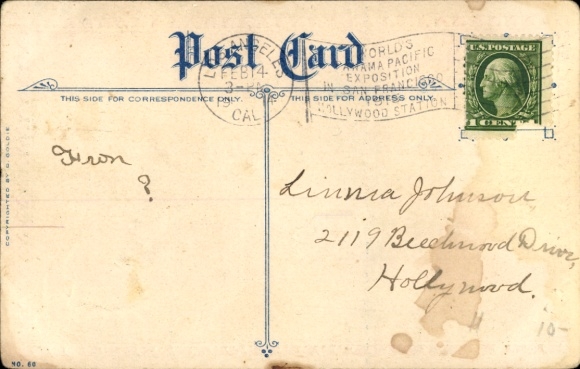 Post Card
LOS ANGELES
FEB 14
CAL.
WORLD'S
PANAMA PACIFIC
EXPOSITION
IN SAN FRANCISCO
1915
HOLLYWOOD STATION
U.S. POSTAGE
1 CENT 1
THIS SIDE FOR CORRESPONDENCE ONLY.
THIS SIDE FOR ADDRESS ONLY.
From
?
Linnia Johnson
2119 Beechwood Drive,
Hollywood.
10-
COPYRIGHTED BY C. GOLDIE
NO. 60